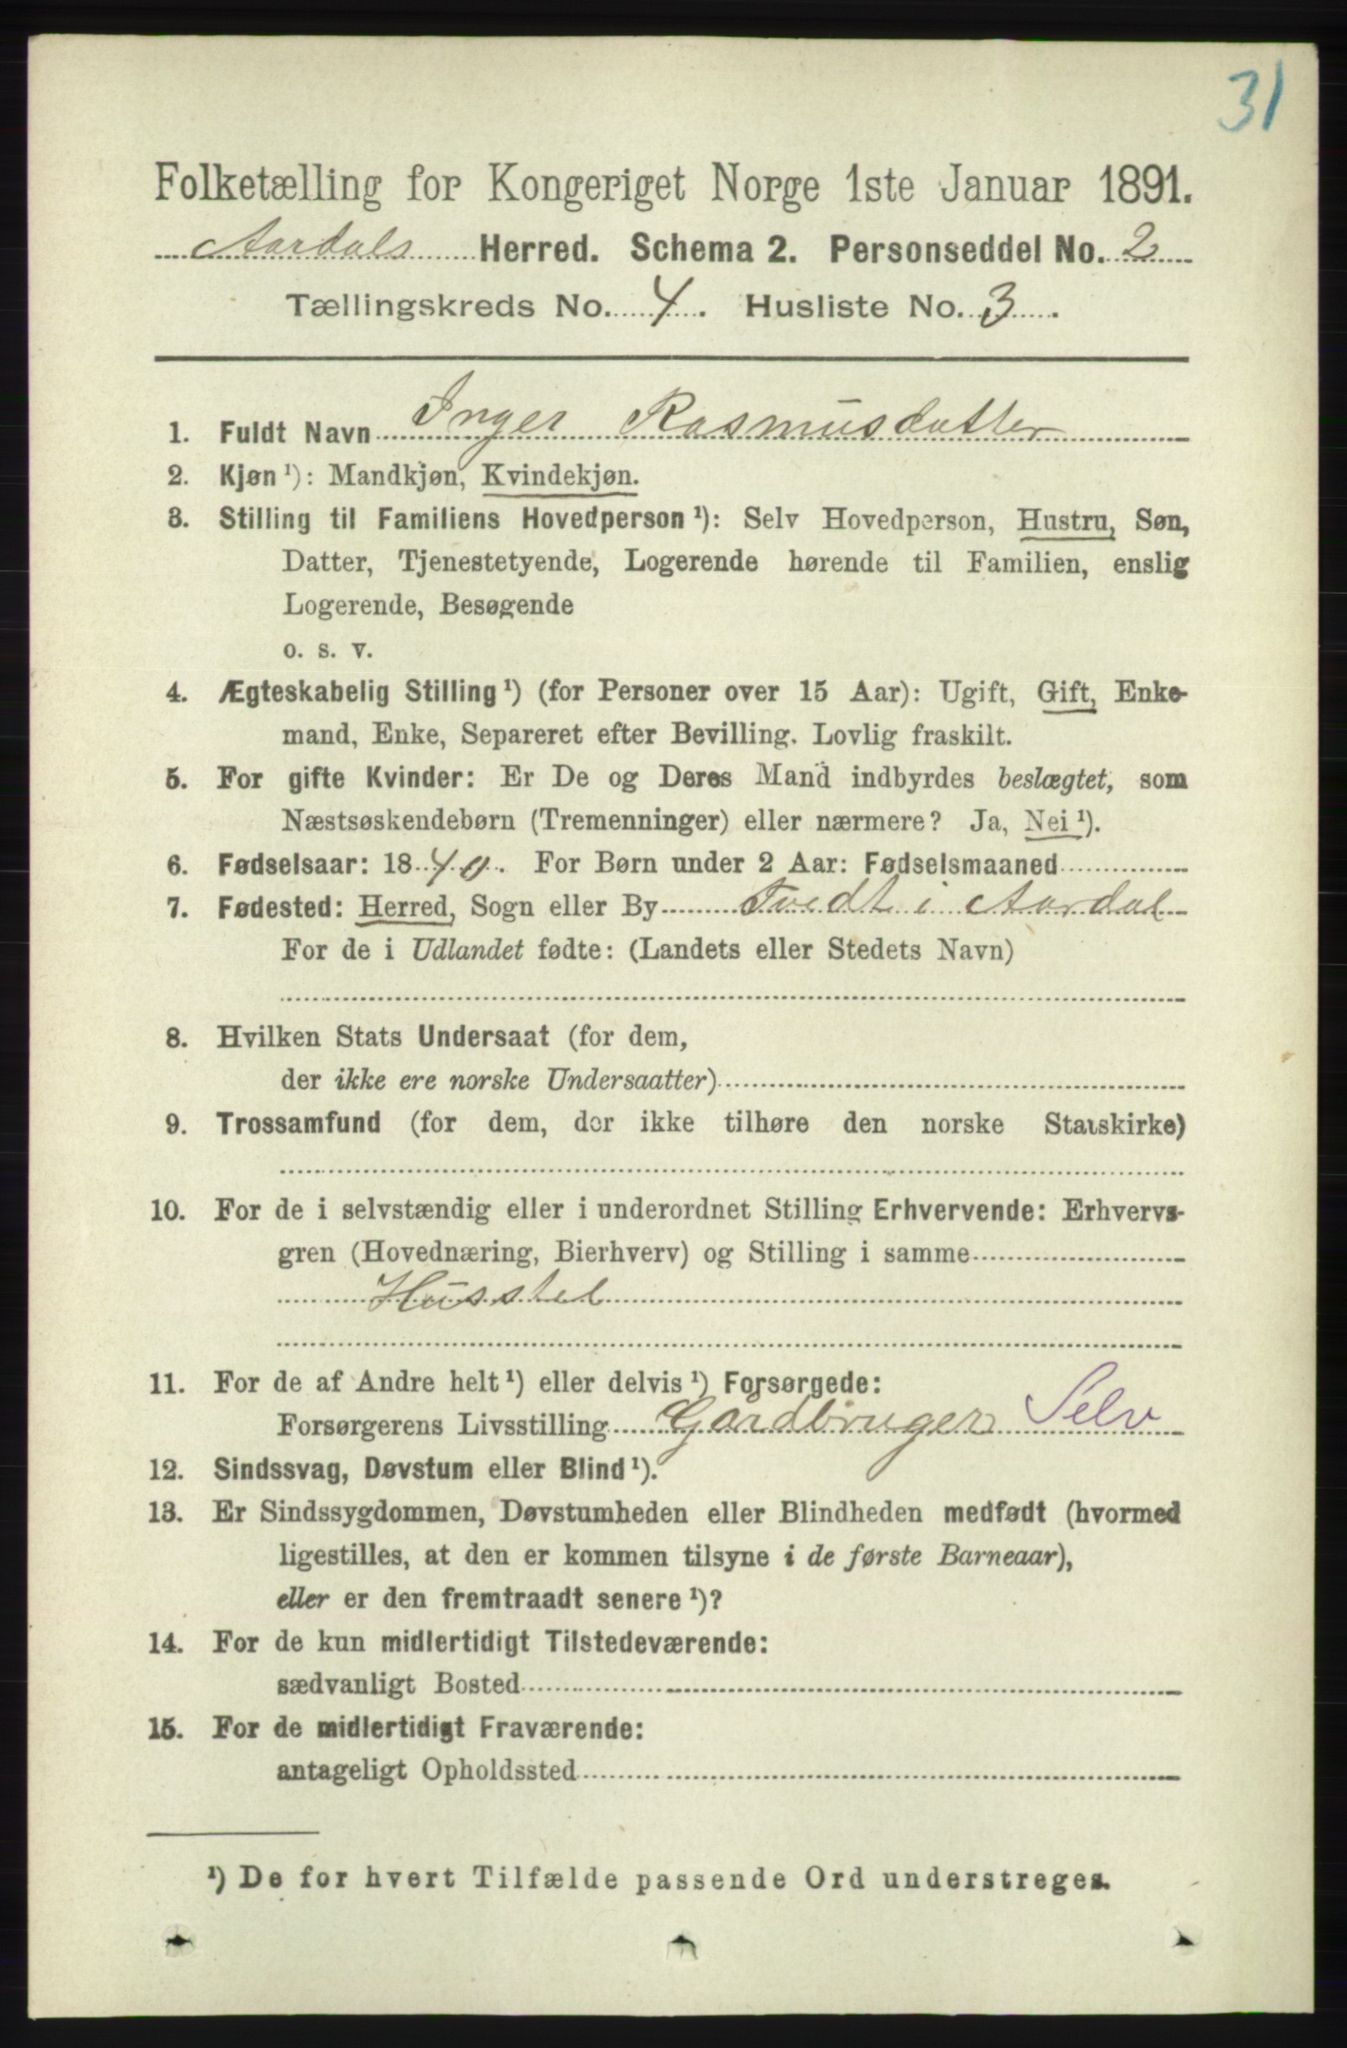 31
Folketælling for Kongeriget Norge 1ste Januar 1891.
Aardals Herred. Schema 2. Personseddel No. 2
Tællingskreds No. 4. Husliste No. 3.
1. Fuldt Navn Inger Rasmusdatter
2. Kjøn ¹): Mandkjøn, Kvindekjøn.
3. Stilling til Familiens Hovedperson ¹): Selv Hovedperson, Hustru, Søn,
Datter, Tjenestetyende, Logerende hørende til Familien, enslig
Logerende, Besøgende
o. s. v.
4. Ægteskabelig Stilling ¹) (for Personer over 15 Aar): Ugift, Gift, Enke-
mand, Enke, Separeret efter Bevilling. Lovlig fraskilt.
5. For gifte Kvinder: Er De og Deres Mand indbyrdes beslægtet, som
Næstsøskendebørn (Tremenninger) eller nærmere? Ja, Nei ¹).
6. Fødselsaar: 1840. For Børn under 2 Aar: Fødselsmaaned
7. Fødested: Herred, Sogn eller By Tvedt i Aardal
For de i Udlandet fødte: (Landets eller Stedets Navn)
8. Hvilken Stats Undersaat (for dem,
der ikke ere norske Undersaatter)
9. Trossamfund (for dem, der ikke tilhøre den norske Statskirke)
10. For de i selvstændig eller i underordnet Stilling Erhvervende: Erhvervs-
gren (Hovednæring, Bierhverv) og Stilling i samme
Husstel
11. For de af Andre helt ¹) eller delvis ¹) Forsørgede:
Forsørgerens Livsstilling Gårdbruger Selv
12. Sindssvag, Døvstum eller Blind ¹).
13. Er Sindssygdommen, Døvstumheden eller Blindheden medfødt (hvormed
ligestilles, at den er kommen tilsyne i de første Barneaar),
eller er den fremtraadt senere ¹)?
14. For de kun midlertidigt Tilstedeværende:
sædvanligt Bosted
15. For de midlertidigt Fraværende:
antageligt Opholdssted
¹) De for hvert Tilfælde passende Ord understreges.